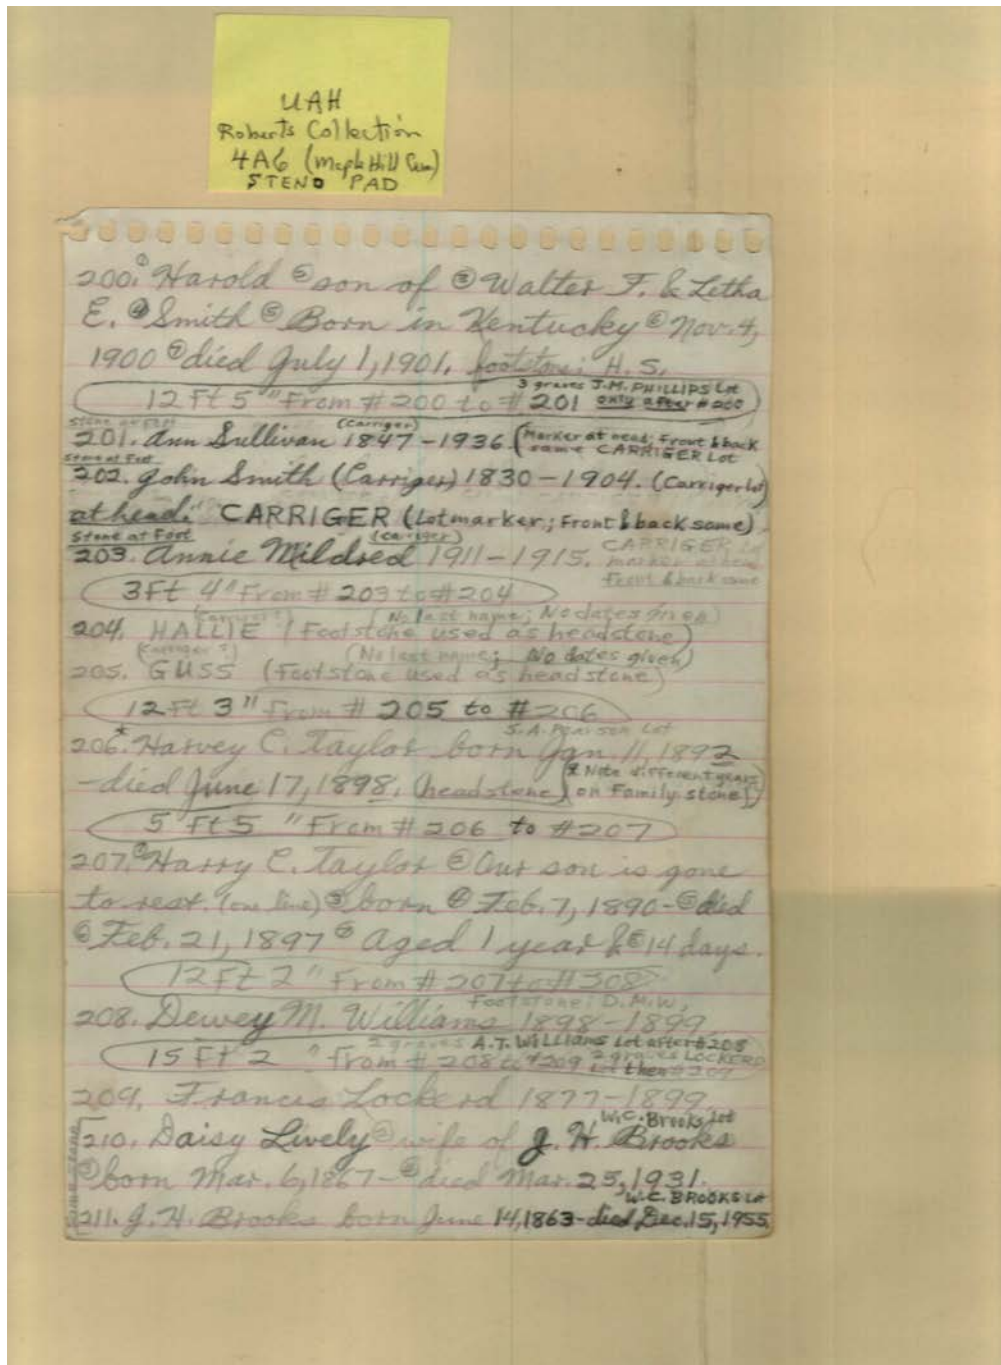 UAH
Roberts Collection
4A6 (Maple Hill Cem)
STENO PAD
200. ① Harold ② son of ③ Walter F. & Letha
E. ④ Smith ⑤ Born in Kentucky ⑥ Nov. 4,
1900 ⑦ died July 1, 1901. footstone: H. S.
3 graves J.M. PHILLIPS Lot
12 Ft 5 " From # 200 to # 201 only after # 200
Stone at Foot (Carriger)
201. Ann Sullivan 1847-1936 (Marker at head; Front & back
same CARRIGER Lot
Stone at Foot
202. John Smith (Carriger) 1830-1904. (Carriger Lot)
at head: CARRIGER (Lot marker; Front & back same)
Stone at Foot (Carriger)
203. Annie Mildred 1911-1915. CARRIGER Lot
marker at head
Front & back same
3 Ft 4" From # 203 to # 204
(Carriger?) (No last name; No dates given)
204. HALLIE (Footstone used as headstone)
(Carriger?) (No last name; No dates given)
205. GUSS (Footstone used as headstone)
12 Ft 3 " From # 205 to # 206
S. A. Pearson Lot
206.* Harvey C. Taylor born Jan 11, 1892
-died June 17, 1898. (headstone) (* Note different years
on Family stone!)
5 Ft 5 " From # 206 to # 207
207. ① Harry C. Taylor ② Our son is gone
to rest. (one line) ③ born ④ Feb. 7, 1890- ⑤ died
⑥ Feb. 21, 1897 ⑦ Aged 1 year & ⑧ 14 days.
12 Ft 2 " From # 207 to # 308
Footstone: D.M.W.
208. Dewey M. Williams 1898-1899
2 graves A.T. Williams Lot after # 208
15 Ft 2 " From # 208 to # 209 2 graves LOCKERD
Lot then # 209
209. Francis Lockerd 1877-1899
W.C. Brooks Lot
210. Daisy Lively ② wife of J. H. Brooks
③ born Mar. 6, 1867- ④ died Mar. 25, 1931.
W.C. BROOKS Lot
211. J. H. Brooks born June 14, 1863-died Dec. 15, 1955
Same stone